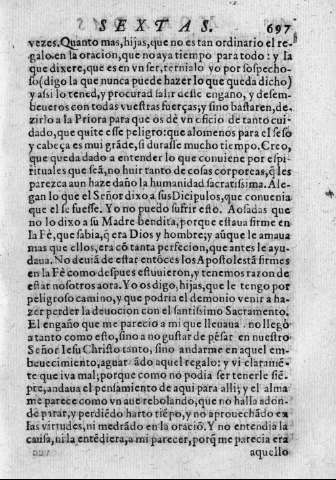 SEXTAS. 697
vezes. Quanto mas, hijas, que no es tan ordinario el re-
galo en la oracion, que no aya tiempo para todo: y la
que dixere, que es en vn ser, ternialo yo por sospecho-
so (digo la que nunca puede hazer lo que queda dicho)
y assi lo tened, y procurad salir desse engaño, y desem-
beueros con todas vuestras fuerças, y sino bastaren, de-
zirlo a la Priora para que os dè vn oficio de tanto cui-
dado, que quite esse peligro: que alomenos para el seso
y cabeça es mui grãde, si durasse mucho tiempo. Creo,
que queda dado a entender lo que conuiene por espi-
rituales que seã, no huir tanto de cosas corporeas, q̃ les
parezca aun haze daño la humanidad sacratissima. Ale-
gan lo que el Señor dixo a sus Dicipulos, que conuenia
que el se fuesse. Yo no puedo sufrir esto. Aosadas que
no lo dixo a su Madre bendita, porque estaua firme en
la Fè, que sabia, q̃ era Dios y hombre; y aũque le amaua
mas que ellos, era cõ tanta perfecion, que antes le ayu-
daua. No deuiã de estar entõces los Apostolestã firmes
en la Fè como despues estuuieron, y tenemos razon de
estar nosotros aora. Yo os digo, hijas, que le tengo por
peligroso camino, y que podria el demonio venir a ha-
zer perder la deuocion con el santissimo Sacramento.
El engaño que me parecio a mi que lleuaua no llegò
a tanto como esto, sino a no gustar de pẽsar en nuestro
Señor Iesu Christo tanto, sino andarme en aquel em-
beuecimiento, aguardãdo aquel regalo: y vi claramẽ-
te que iva mal, porque como no podia ser tenerle siẽ-
pre, andaua el pensamiento de aqui para alli; y el alma
me parece como vn aue rebolando, que no halla adon-
de parar, y perdiẽdo harto tiẽpo, y no aprouechãdo ẽ
las virtudes, ni medrãdo en la oraciõ. Y no entendia la
causa, ni la entẽdiera, a mi parecer, porq̃ me parecia era
aquello